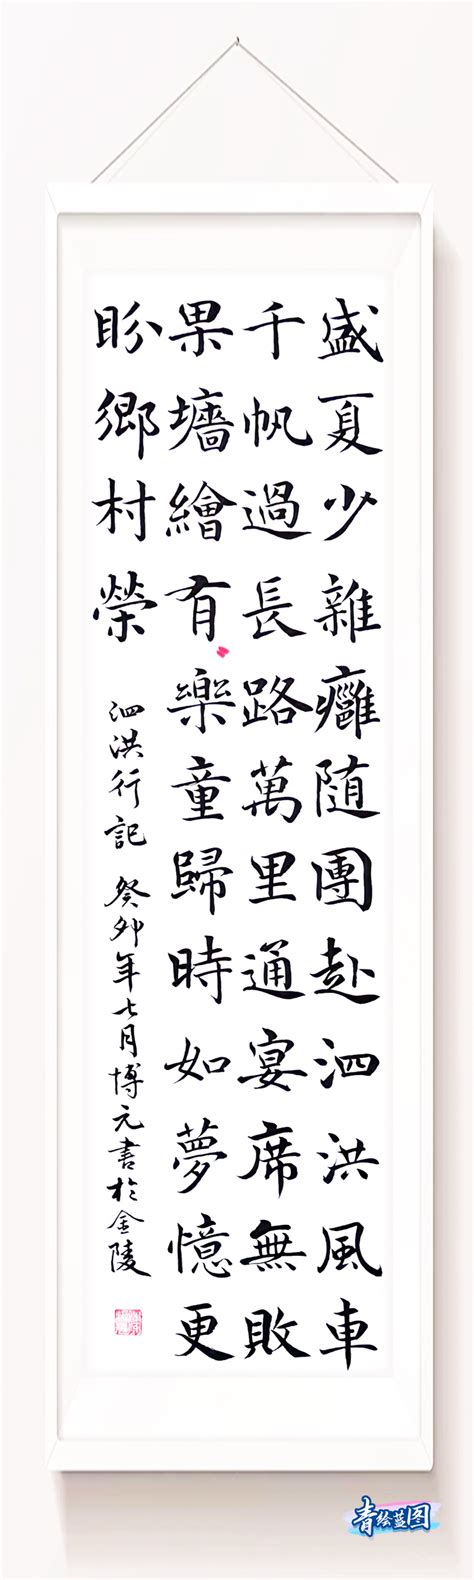 盛夏少雜癰随團赴泗洪風車
千帆過長路萬里通宴席無敗
果墻繪有樂童歸時如夢憶更
盼鄉村榮 泗洪行記 癸卯年七月博元書於金陵
青绘蓝图